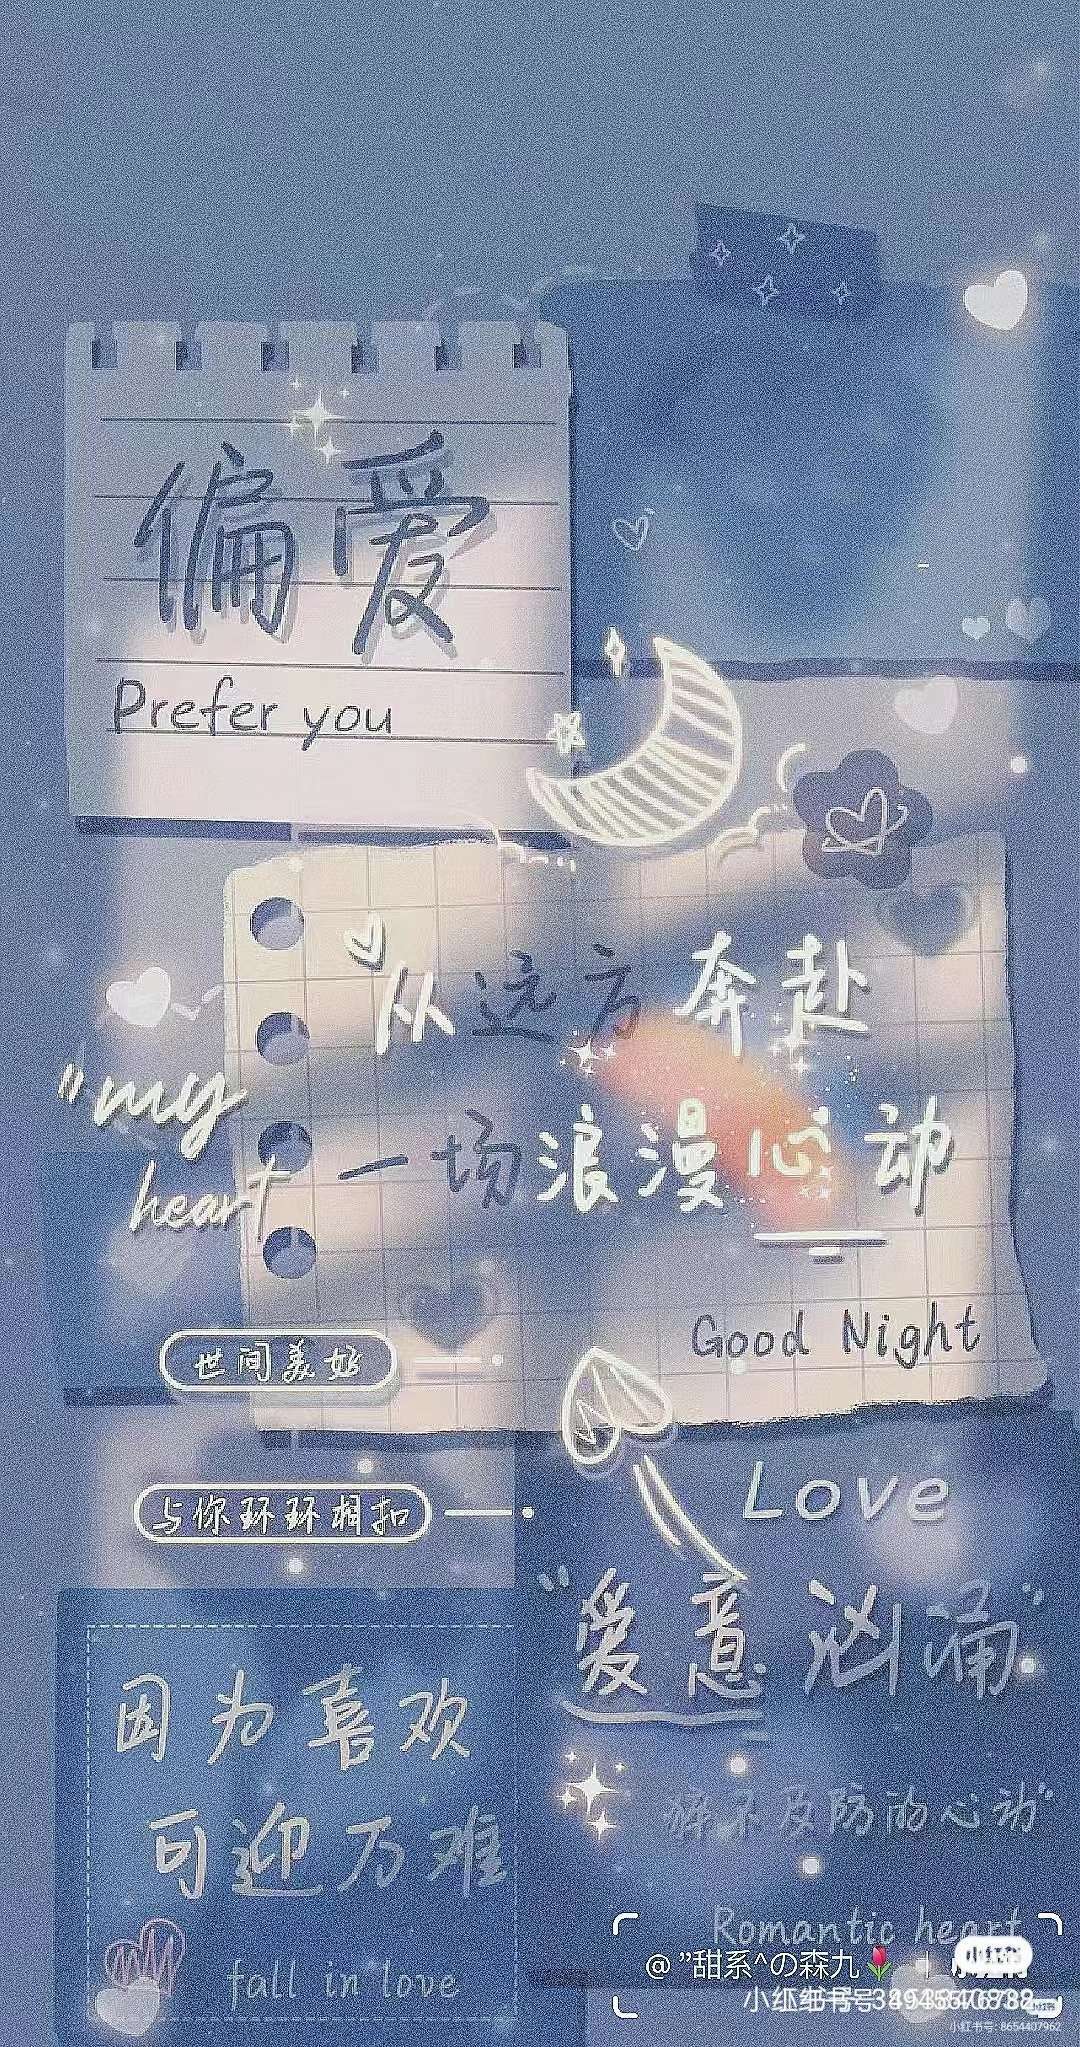 偏爱
Prefer you
从远方奔赴
一场浪漫心动
"my
heart
Good Night
世间美好
与你环环相扣
Love
"爱意汹涌"
因为喜欢
可迎万难
fall in love
猝不及防的心动"
Romantic heart
@"甜系^の森九🌷
小红书
小红书号: 8654407962